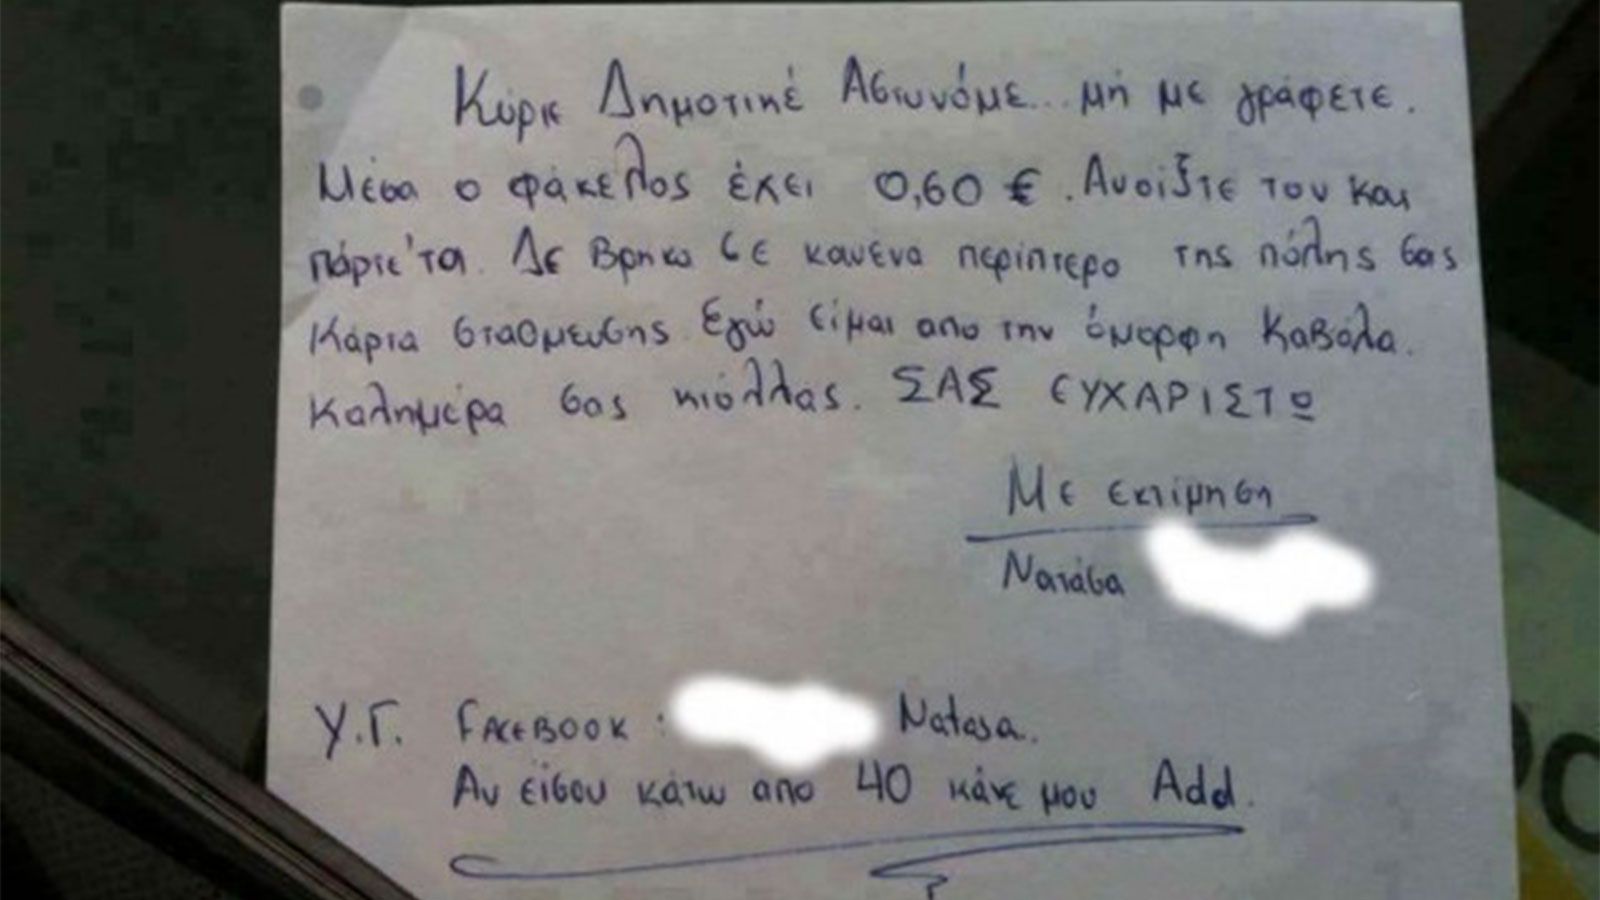 Κύριε Δημοτικέ Αστυνόμε... μή με γράφετε.
Μέσα ο φάκελος έχει 0,60 €. Ανοίξτε τον και
πάρτε 'τα. Δε Βρηκα σε κανένα περίπτερο της πόλης σας
κάρτα σταθμευσης. Εγώ είμαι απο την όμορφη Καβάλα.
Καλημέρα σας κιόλλας. ΣΑΣ ΕΥΧΑΡΙΣΤΩ
Με εκτίμηση
Νατάσα
Υ.Γ. FACEBOOK : Natasa.
Αν είσου κάτω απο 40 κάνε μου Add.